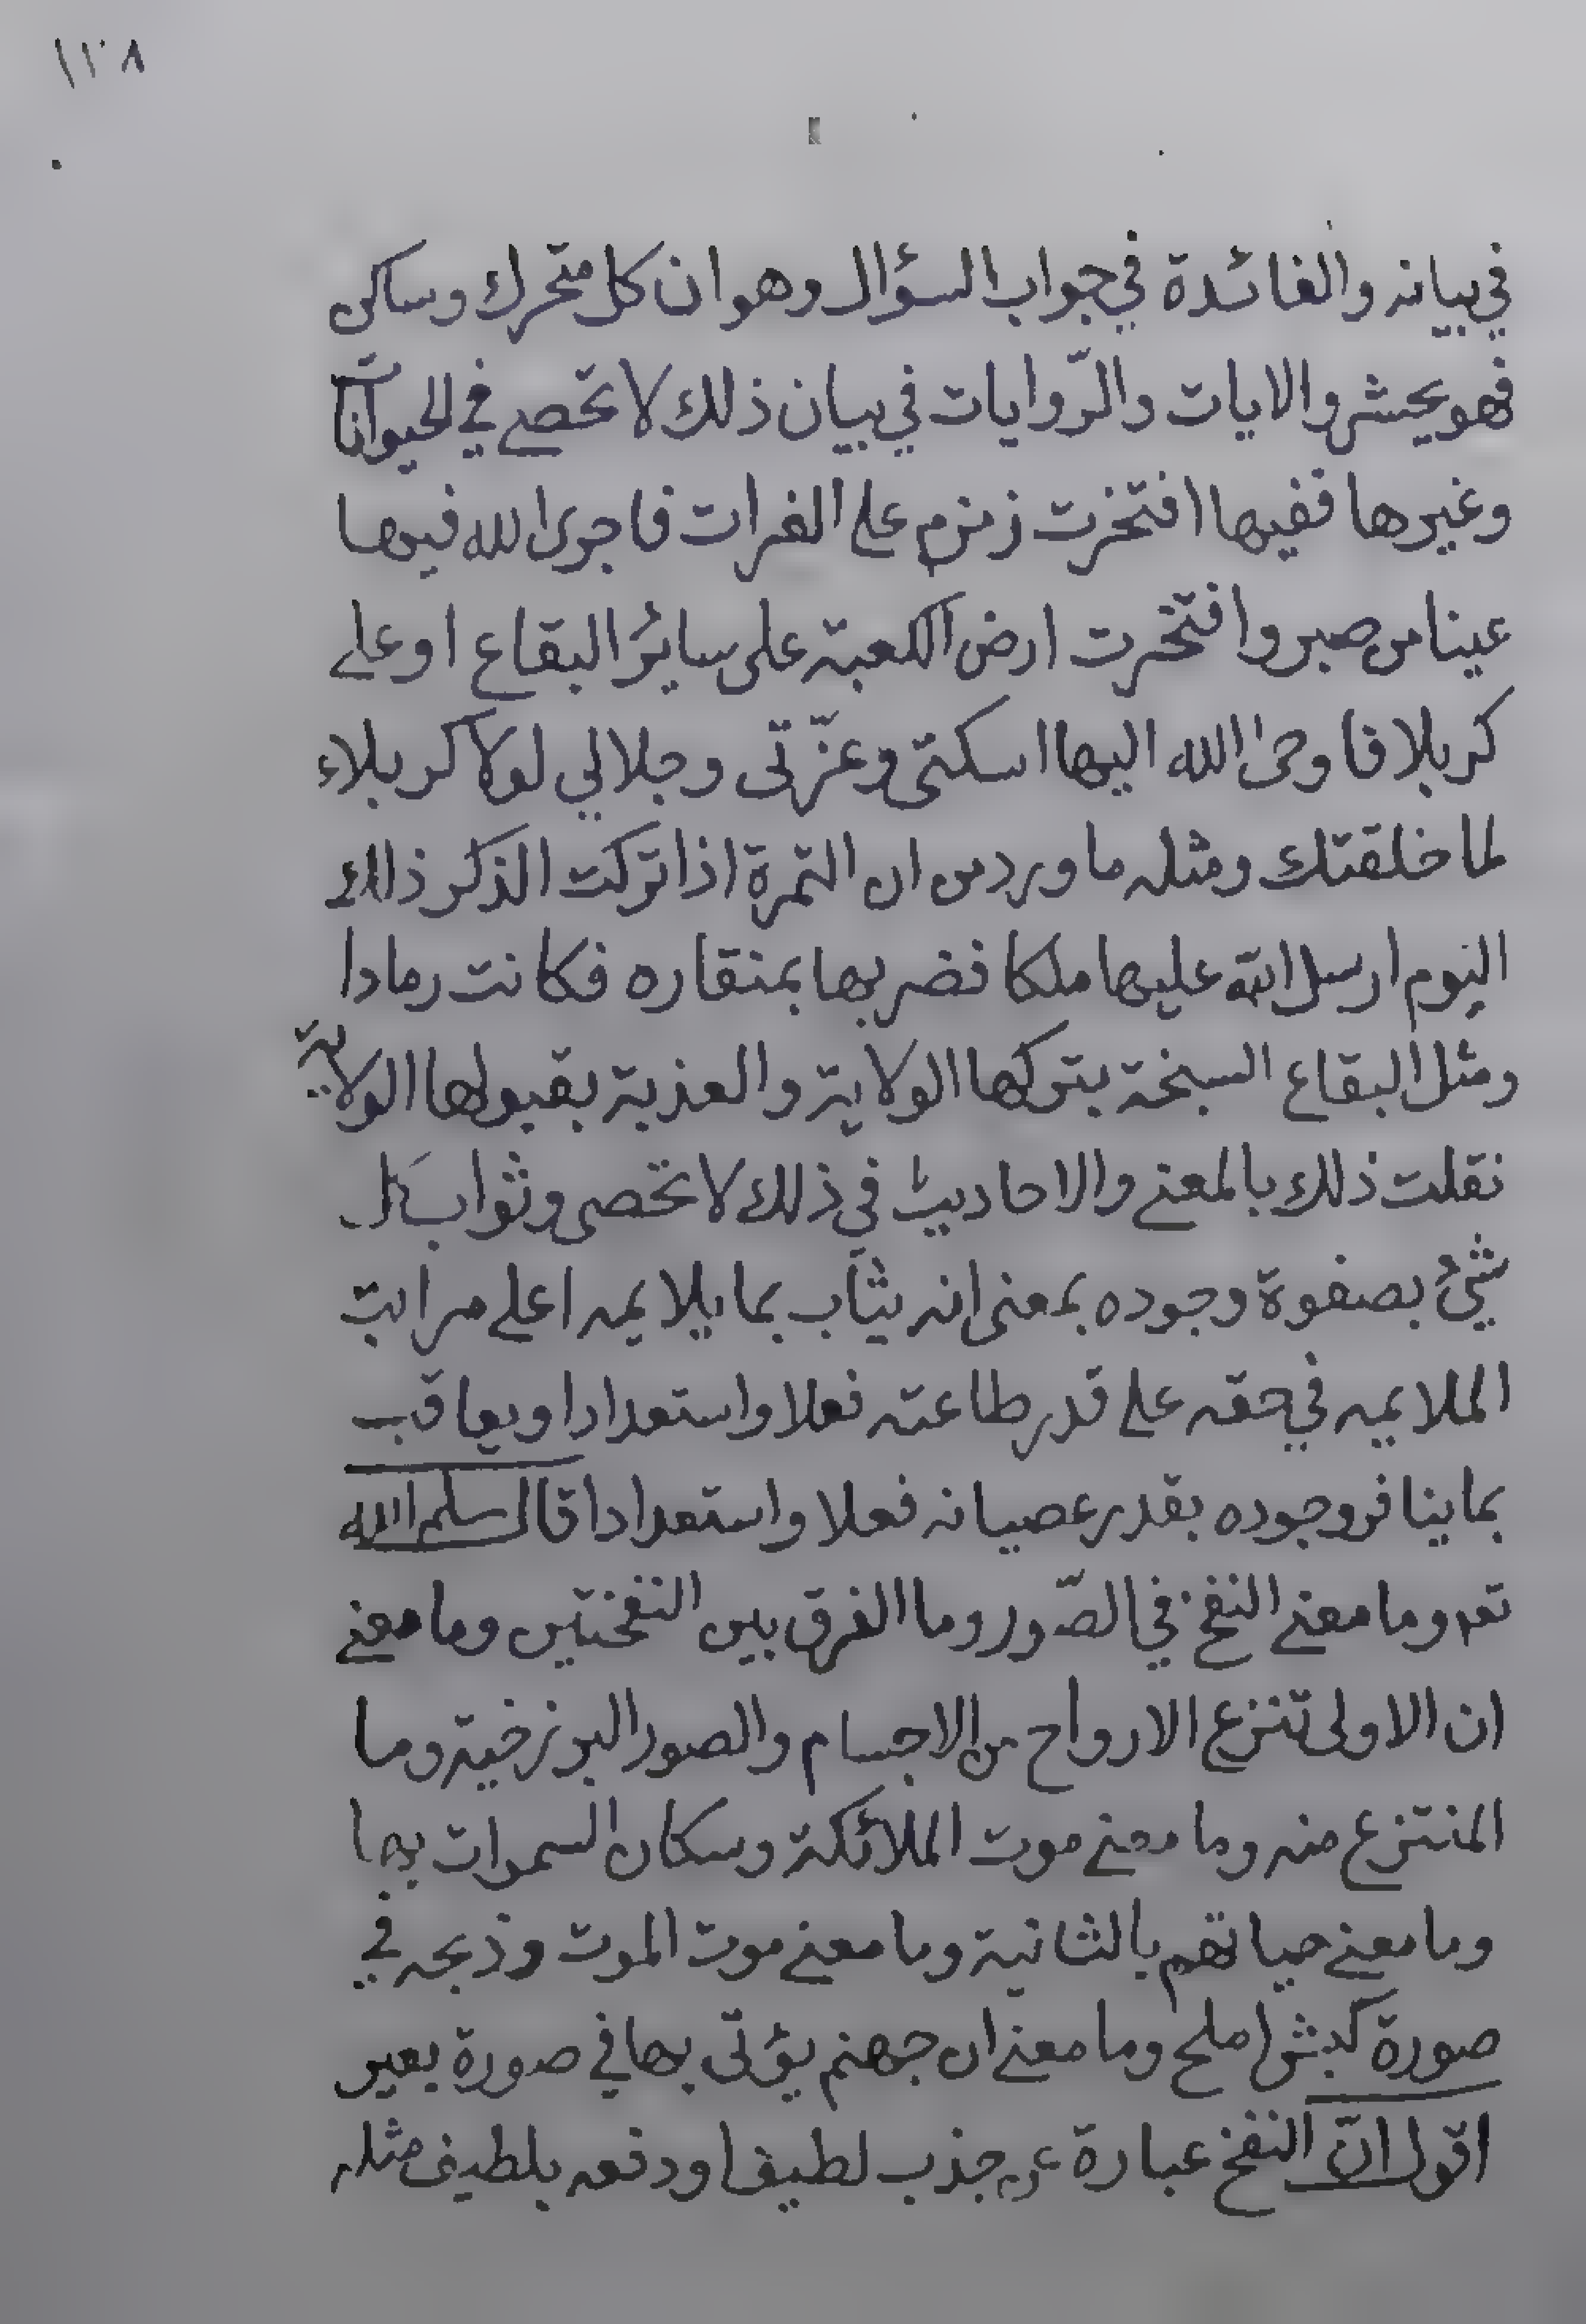 ١٢٨
في بيانه والفائدة في جواب السؤال وهو ان كل متحرك وساكن
فهو يحشر والايات والرّوايات في بيان ذلك لا تحصى في الحيوانات
وغيرها ففيها افتخرت زمزم على الفرات فاجرى الله فيها
عينا من صبر وافتخرت ارض الكعبة على سائر البقاع او على
كربلا فاوحى الله اليها اسكتى وعزّتى وجلالي لولا كربلاء
لما خلقتك ومثله ما ورد من ان التمرة اذا تركت الذكر ذلك
اليوم ارسل الله عليها ملكا فضربها بمنقاره فكانت رمادا
ومثل البقاع السبخة بتركها الولاية والعذبة بقبولها الولاية
نقلت ذلك بالمعنى والاحاديث في ذلك لا تحصى وثواب كل
شيء بصفوة وجوده بمعنى انه يثاب بما يلايمه اعلى مراتب
الملايمه في حقه على قدر طاعته فعلا واستعدادا ويعاقب
بما ينافر وجوده بقدر عصيانه فعلا واستعدادا قال سلم الله
تعه وما معنى النفخ في الصّور وما الفرق بين النفختين وما معنى
ان الاولى تنزع الارواح من الاجسام والصور البرزخية وما
المنتزع منه وما معنى موت الملائكة وسكان السموات بها
وما معنى حياتهم بالثانية وما معنى موت الموت وذبحه في
صورة كبش املح وما معنى ان جهنم يؤتى بها في صورة بعير
اقول انّ النفخ عبارة عن جذب لطيف او دفعه بلطيف مثله